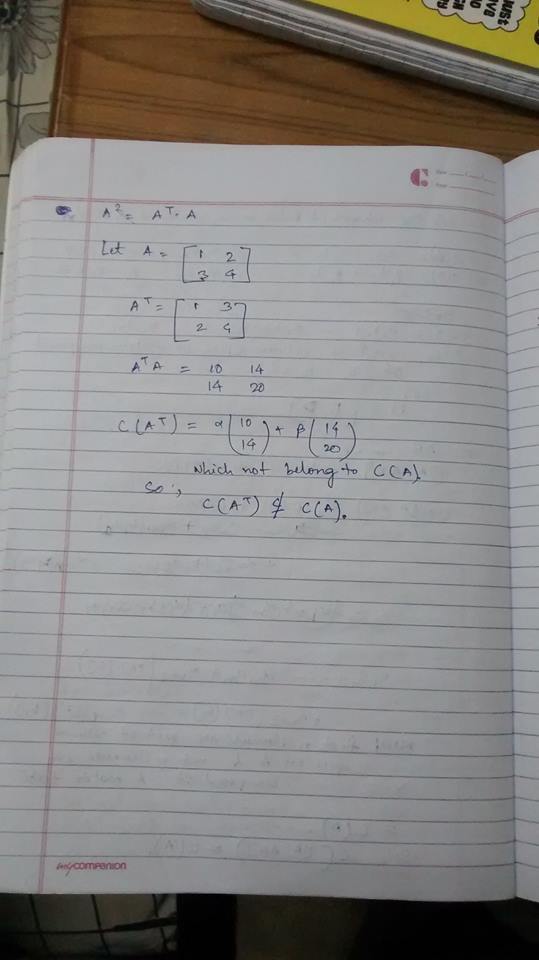 JUST
A² = Aᵀ · A
Let A = [1 2
3 4]
Aᵀ = [1 3
2 4]
AᵀA = 10 14
14 20
C(Aᵀ) = α(10
14) + β(14
20)
which not belong to C(A)
So,
C(Aᵀ) ⊄ C(A).
mycompanion